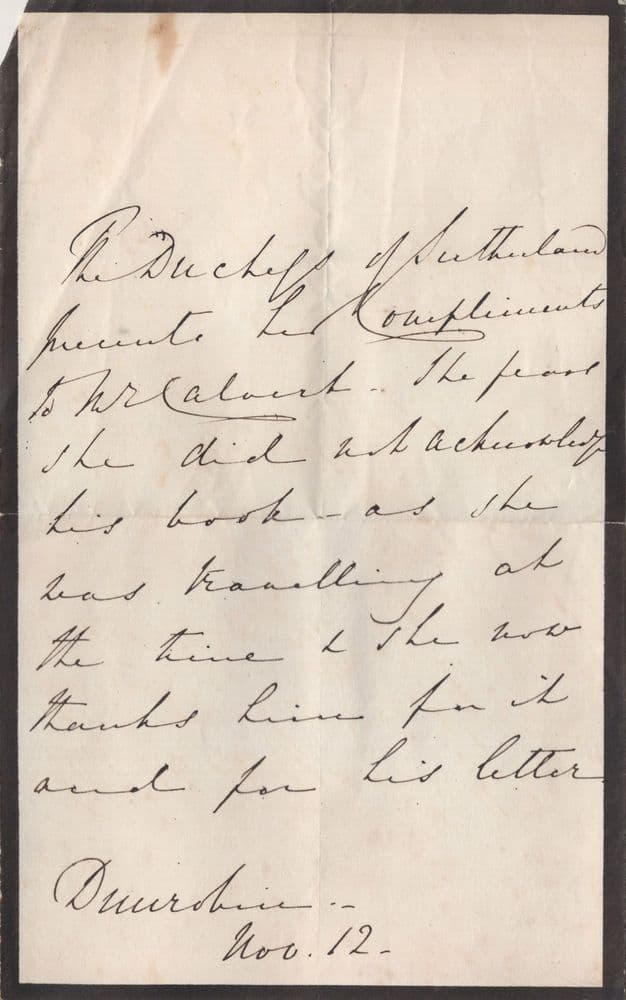 The Duchess of Sutherland
presents her Compliments
to Mr Calvert - She fears
she did not acknowledge
his book - as she
was travelling at
the time & she now
thanks him for it
and for his letter
Dunrobin -
Nov. 12 -